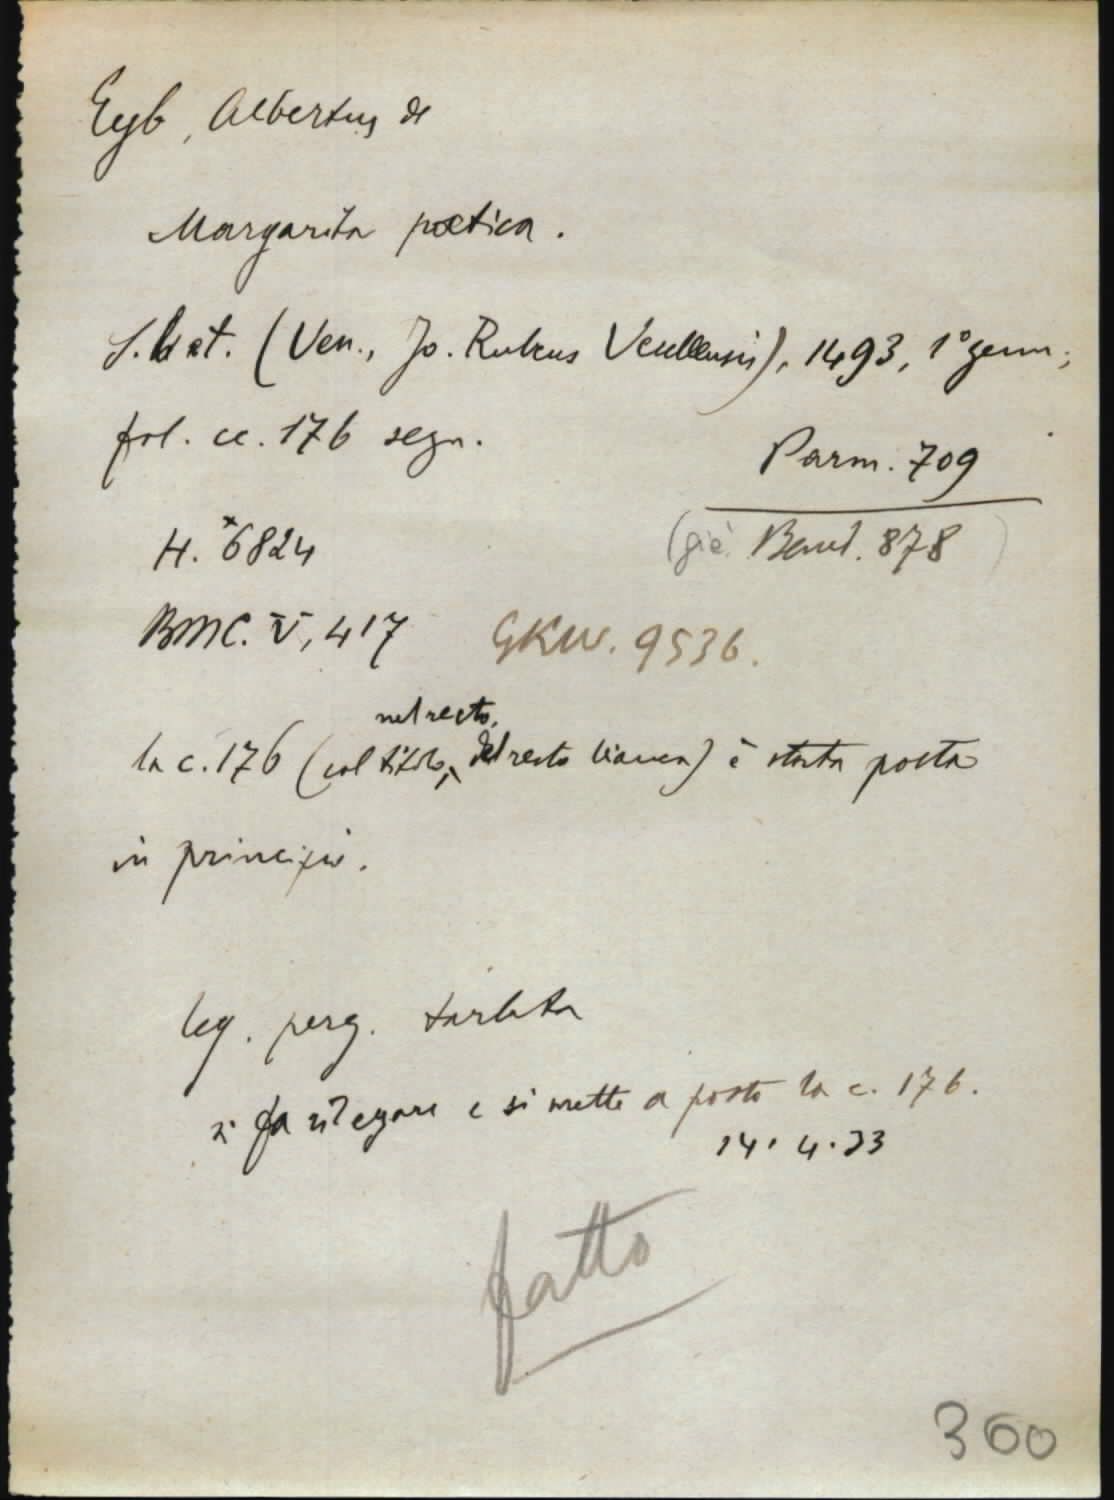 Eyb, Albertus de
Margarita poetica.
S. l. et t. (Ven., Jo. Rubeus Vercellensis), 1493, 1° genn.;
fol. cc. 176 segn.
Parm. 709
H. *6824
(già Bend. 878)
BMC. V, 417 GKW. 9536.
nel recto,
la c. 176 (col titolo, del resto bianca) è stata posta
in principio.
leg. perg. tarlata
si fa rilegare e si mette a posto la c. 176.
14.4.33
fatto
360